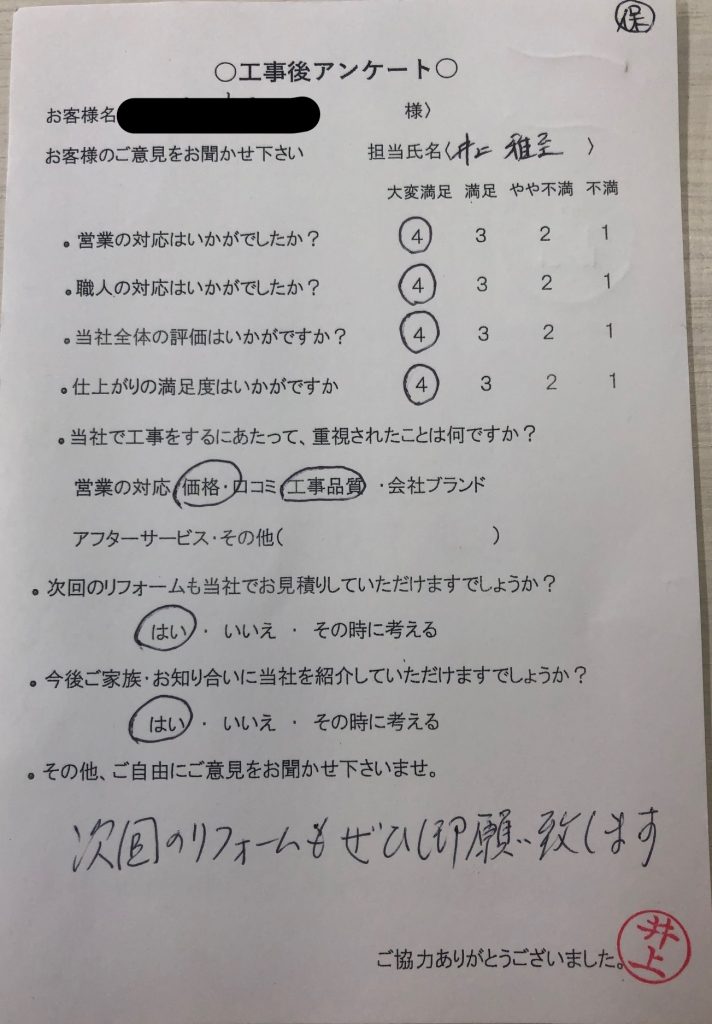 保
○工事後アンケート○
お客様名 様〉
お客様のご意見をお聞かせ下さい 担当氏名〈井上 雅至 〉
大変満足 満足 やや不満 不満
・営業の対応はいかがでしたか? 4 3 2 1
・職人の対応はいかがでしたか? 4 3 2 1
・当社全体の評価はいかがですか? 4 3 2 1
・仕上がりの満足度はいかがですか 4 3 2 1
・当社で工事をするにあたって、重視されたことは何ですか?
営業の対応・価格・口コミ・工事品質・会社ブランド
アフターサービス・その他( )
・次回のリフォームも当社でお見積りしていただけますでしょうか?
はい・いいえ・その時に考える
・今後ご家族・お知り合いに当社を紹介していただけますでしょうか?
はい・いいえ・その時に考える
・その他、ご自由にご意見をお聞かせ下さいませ。
次回のリフォームもぜひ御願い致します
ご協力ありがとうございました。
井上